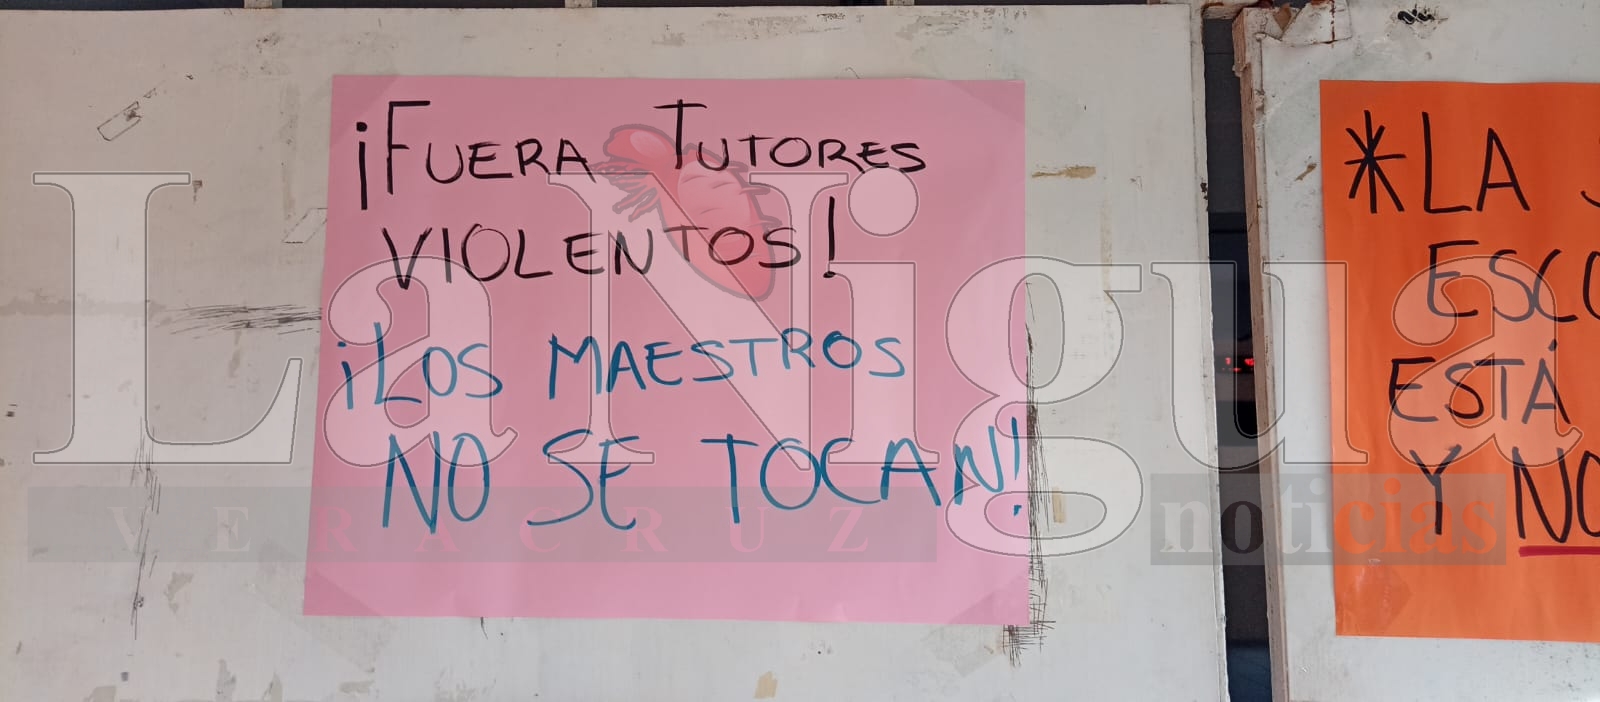 ¡FUERA TUTORES
VIOLENTOS!
¡LOS MAESTROS
NO SE TOCAN!
*LA
ESTÁ
Y NO
La Nigua
VERACRUZ
noticias